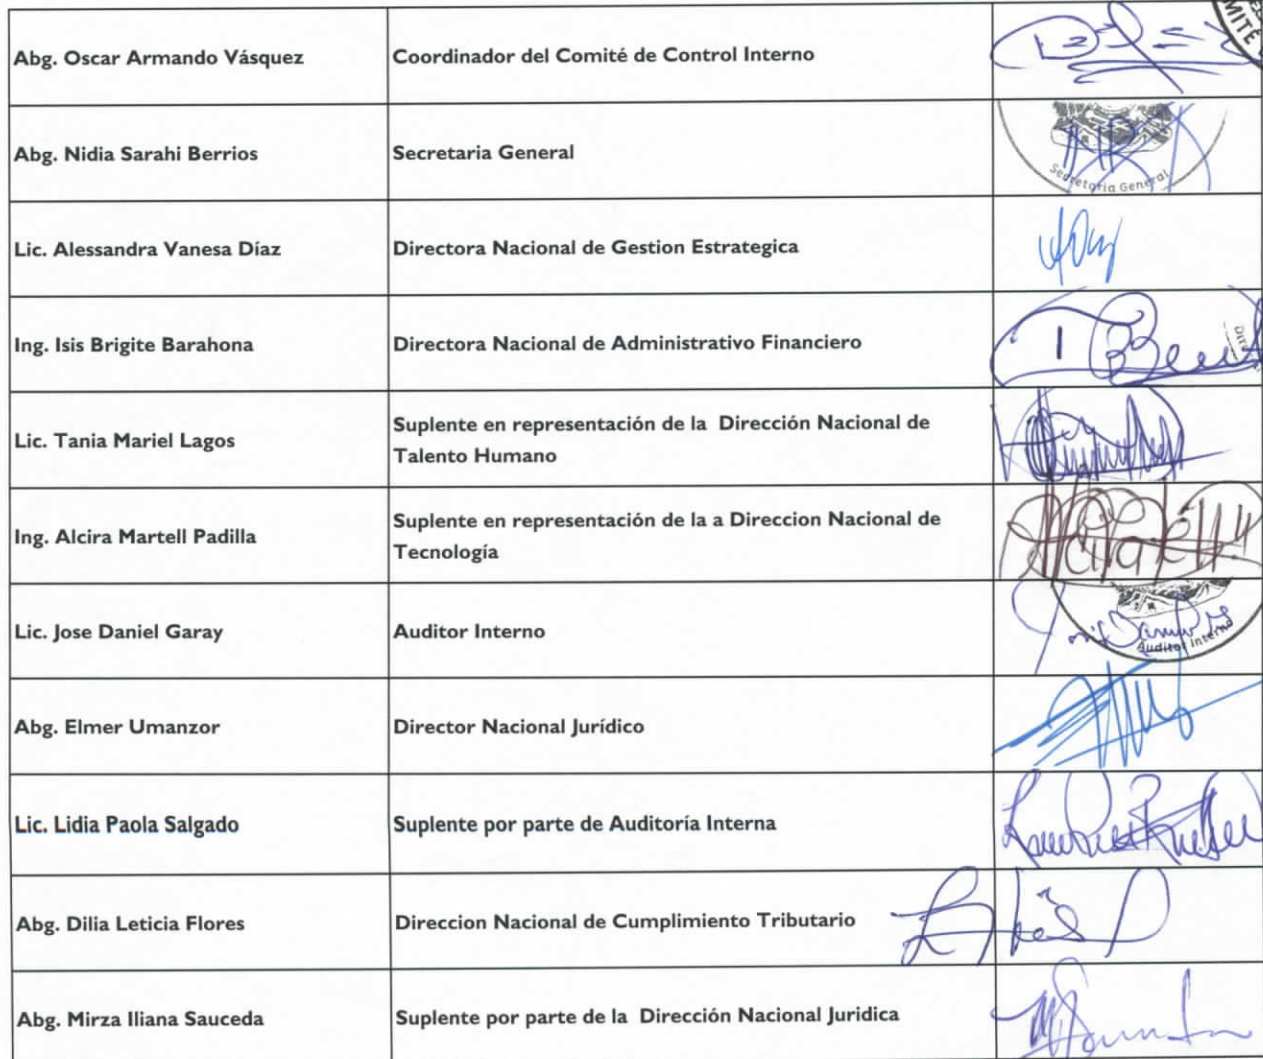 Abg. Oscar Armando Vásquez
Coordinador del Comité de Control Interno
Abg. Nidia Sarahi Berrios
Secretaria General
Secretaria General
Lic. Alessandra Vanesa Díaz
Directora Nacional de Gestion Estrategica
Ing. Isis Brigite Barahona
Directora Nacional de Administrativo Financiero
Lic. Tania Mariel Lagos
Suplente en representación de la Dirección Nacional de
Talento Humano
Ing. Alcira Martell Padilla
Suplente en representación de la a Direccion Nacional de
Tecnología
Lic. Jose Daniel Garay
Auditor Interno
Auditor Interno
Abg. Elmer Umanzor
Director Nacional Jurídico
Lic. Lidia Paola Salgado
Suplente por parte de Auditoría Interna
Abg. Dilia Leticia Flores
Direccion Nacional de Cumplimiento Tributario
Abg. Mirza Iliana Sauceda
Suplente por parte de la Dirección Nacional Juridica